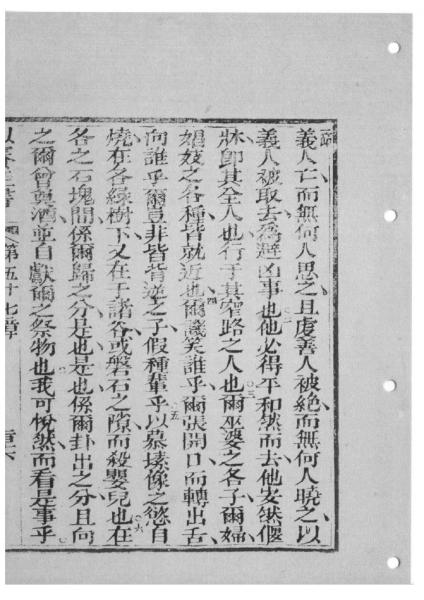 義人亡而無何人思之且虔善人被絕而無何人曉之以
義人被取去爲避凶事也他必得平和然而去他安然偃
牀卽其全人也行于其窄路之人也爾巫婆之各子爾婦
娼妓之各種皆就近也爾譏笑誰乎爾張開口而轉出舌
向誰乎爾豈非皆背逆之子假種輩乎以慕塐像之慾自
燒在各綠樹下又在于諸谷或磐石之隙而殺嬰兒也在
各之石塊間係爾歸之分是也是也係爾卦出之分且向
之爾曾奠酒並自獻爾之祭物也我可悅然而看是事乎
第五十七章